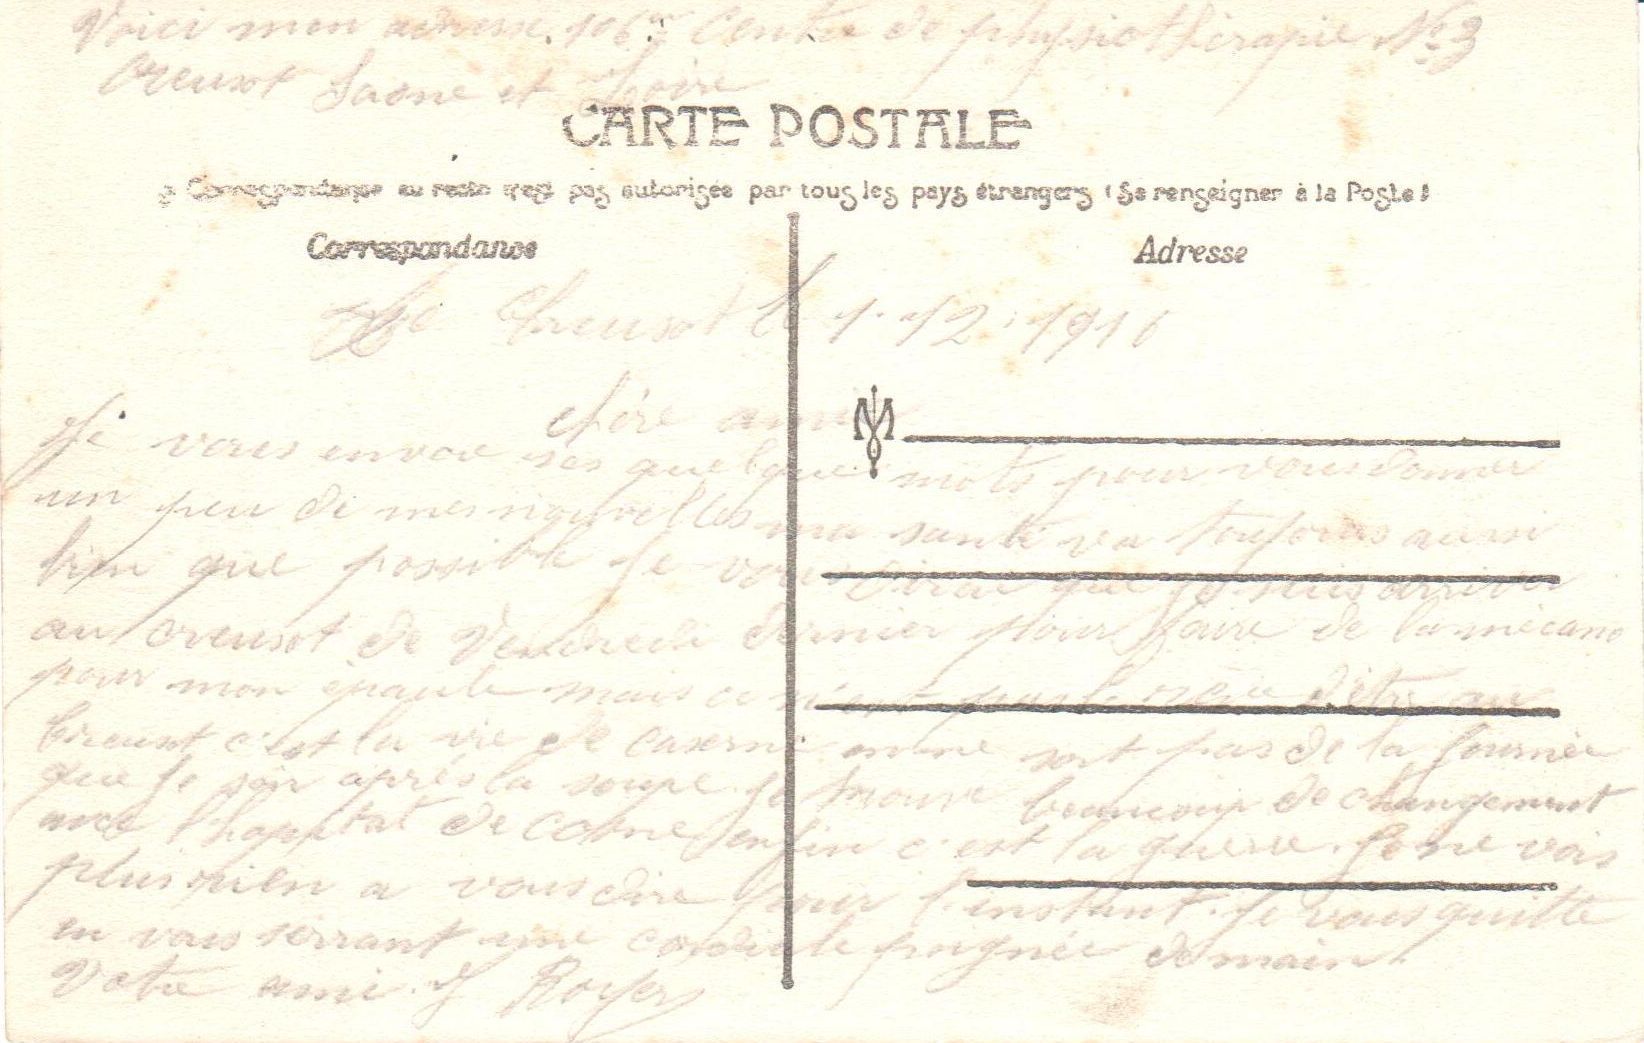 Voici mon adresse. 106e Centre de physiothérapie No 3
Creusot Saone et Loire
CARTE POSTALE
La Correspondance au recto n'est pas autorisée par tous les pays étrangers (Se renseigner à la Poste)
Correspondance
Adresse
Le Creusot le 1.12.1916
chère amie
Je vous envoie ses quelque mots pour vous donner
un peu de mes nouvelles ma santé va toujours aussi
bien que possible Je vous dirai que Je suis arriver
au creusot de Vendredi dernier pour faire de la mécano
pour mon épaule mais ce n'est pas le rêve d'être au
Creusot c'est la vie de caserne on ne sort pas de la Journée
que le soir après la soupe Je trouve beaucoup de changement
avec l'hopital de Cosne enfin c'est la guerre. Je ne vois
plus rien a vous dire pour l'instant. Je vous quitte
en vous serrant une cordiale poignée de main.
Votre ami J Royer